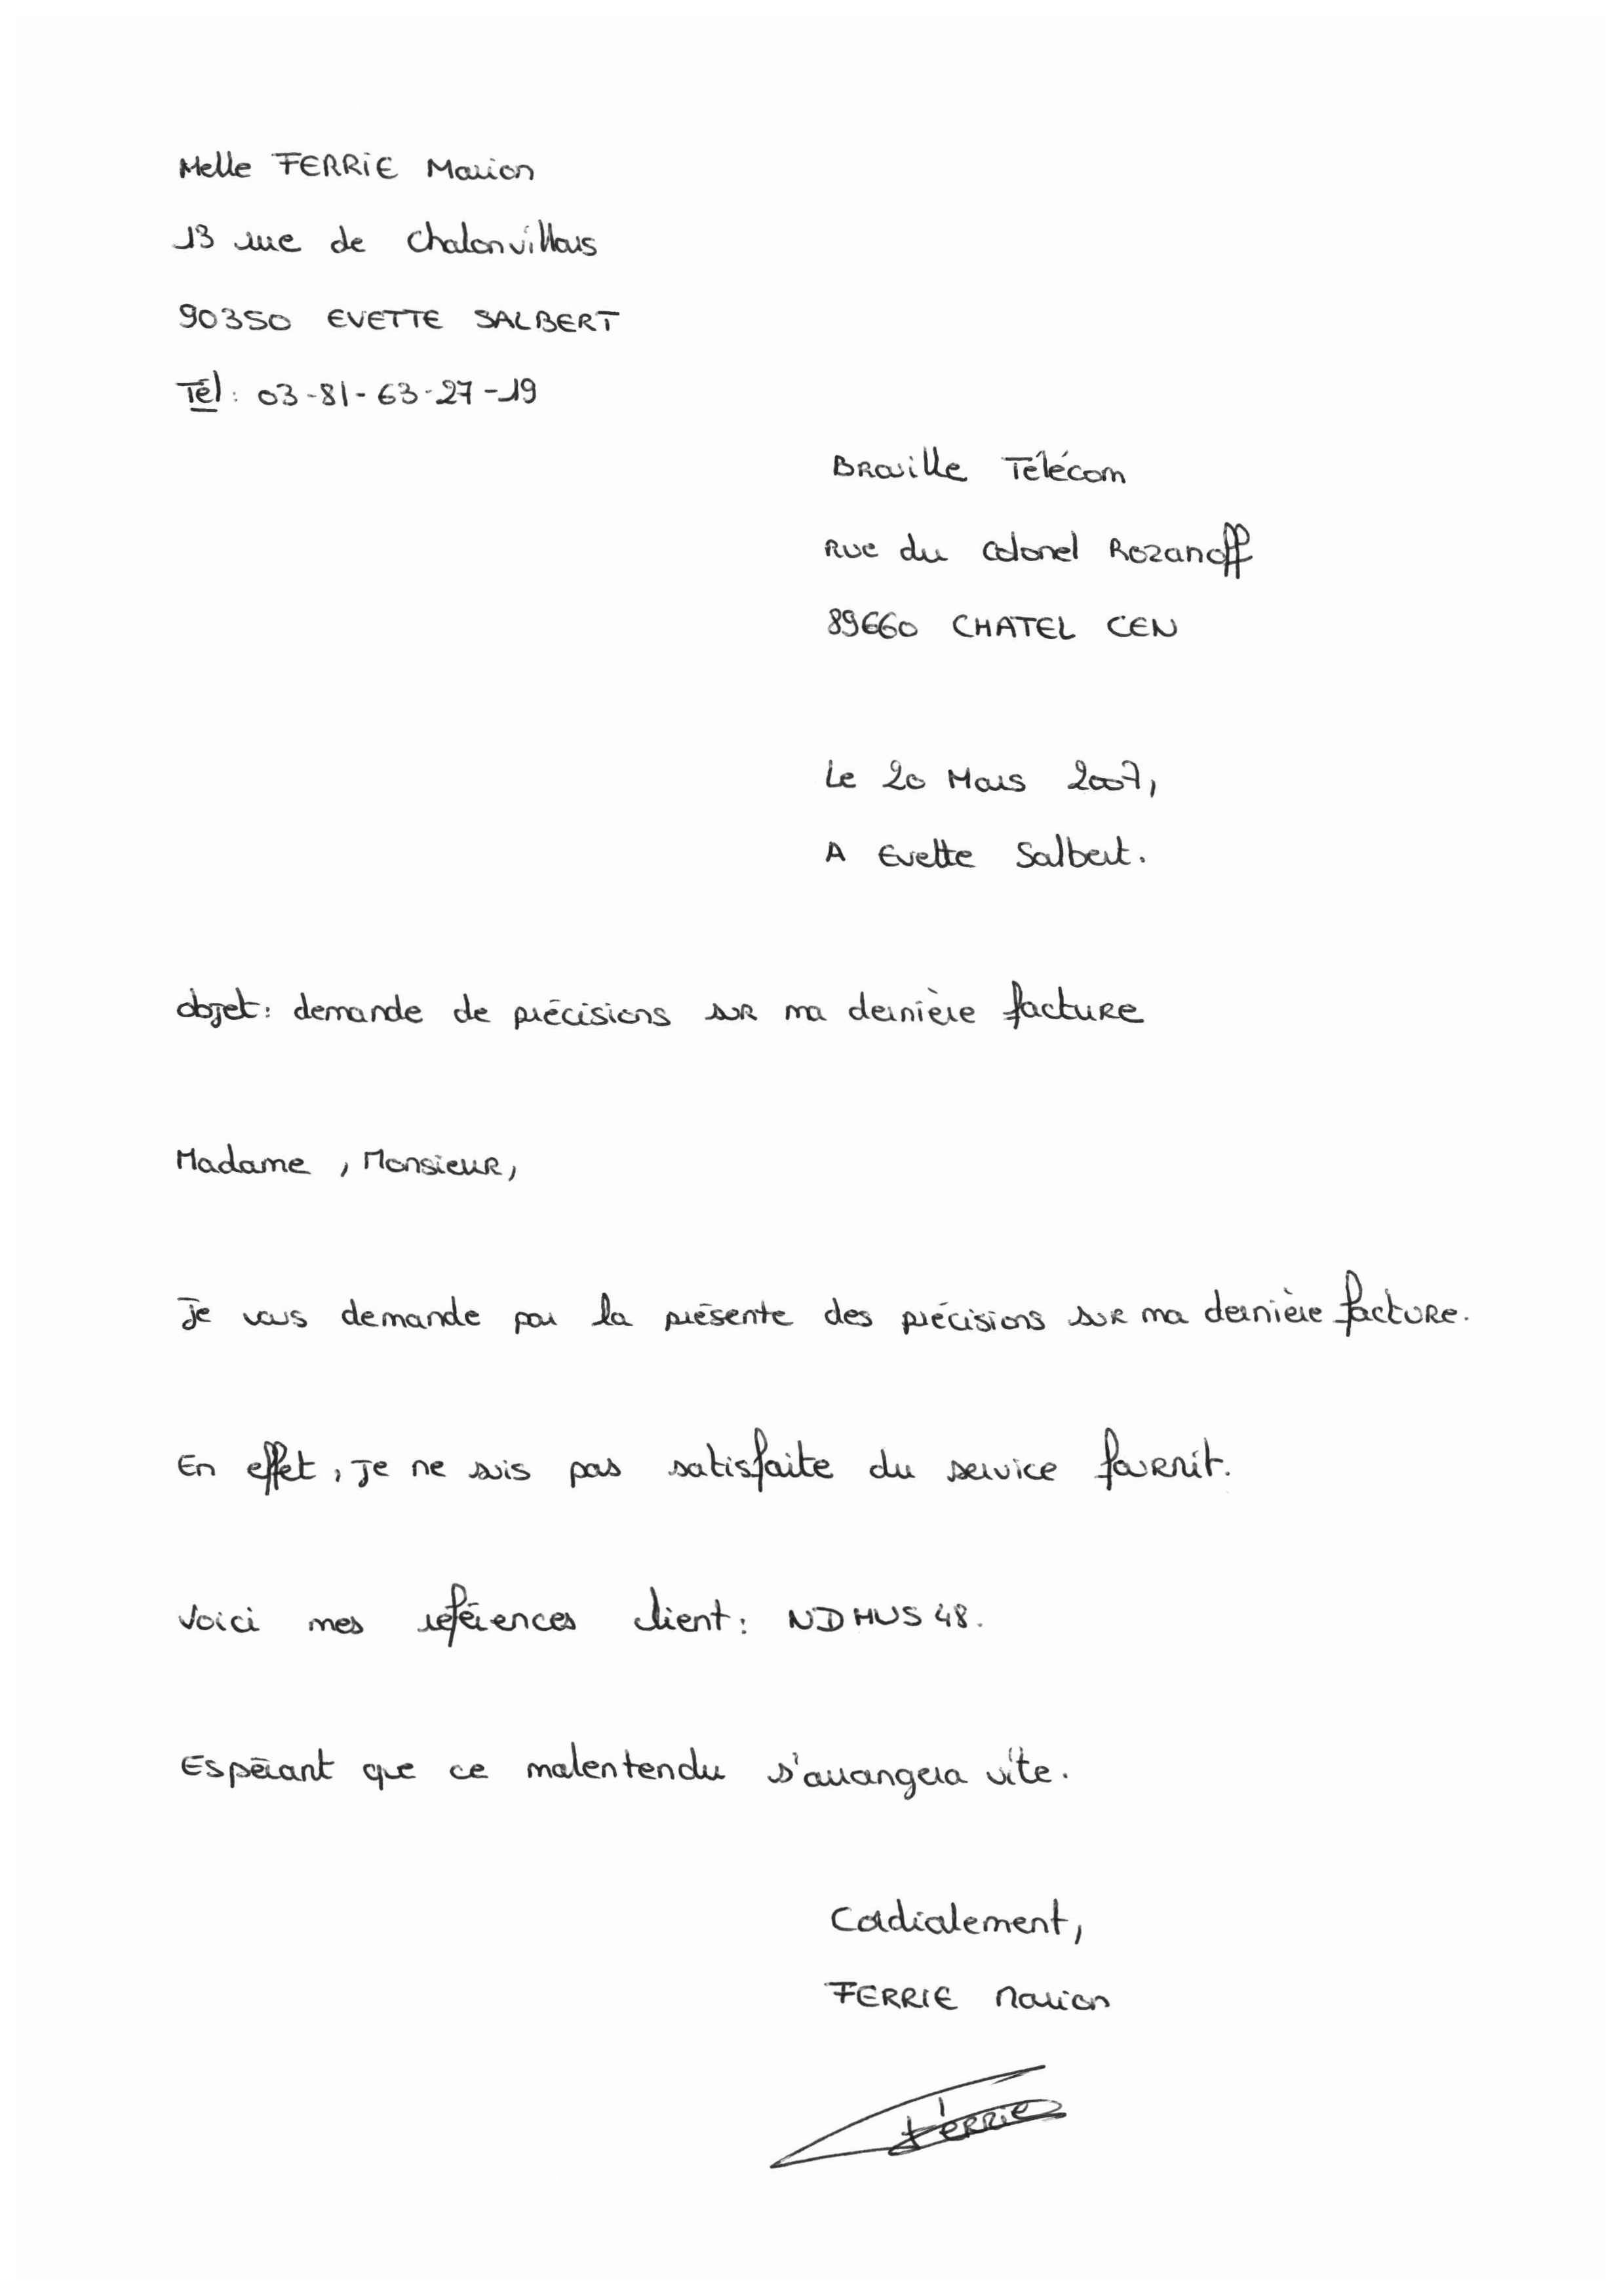 Melle FERRIE Marion
13 rue de Chalonvillars
90350 EVETTE SALBERT
Tél : 03-81-63-27-19
Braille Télécom
Rue du Colonel Rozanoff
89660 CHATEL CEN
Le 20 Mars 2007,
A Evette Salbert.
objet : demande de précisions sur ma dernière facture
Madame , Monsieur,
Je vous demande par la présente des précisions sur ma dernière facture.
En effet, je ne suis pas satisfaite du service fournit.
Voici mes références client : NDHUS 48.
Espérant que ce malentendu s'arrangera vite.
Cordialement,
FERRIE Marion
Ferrie